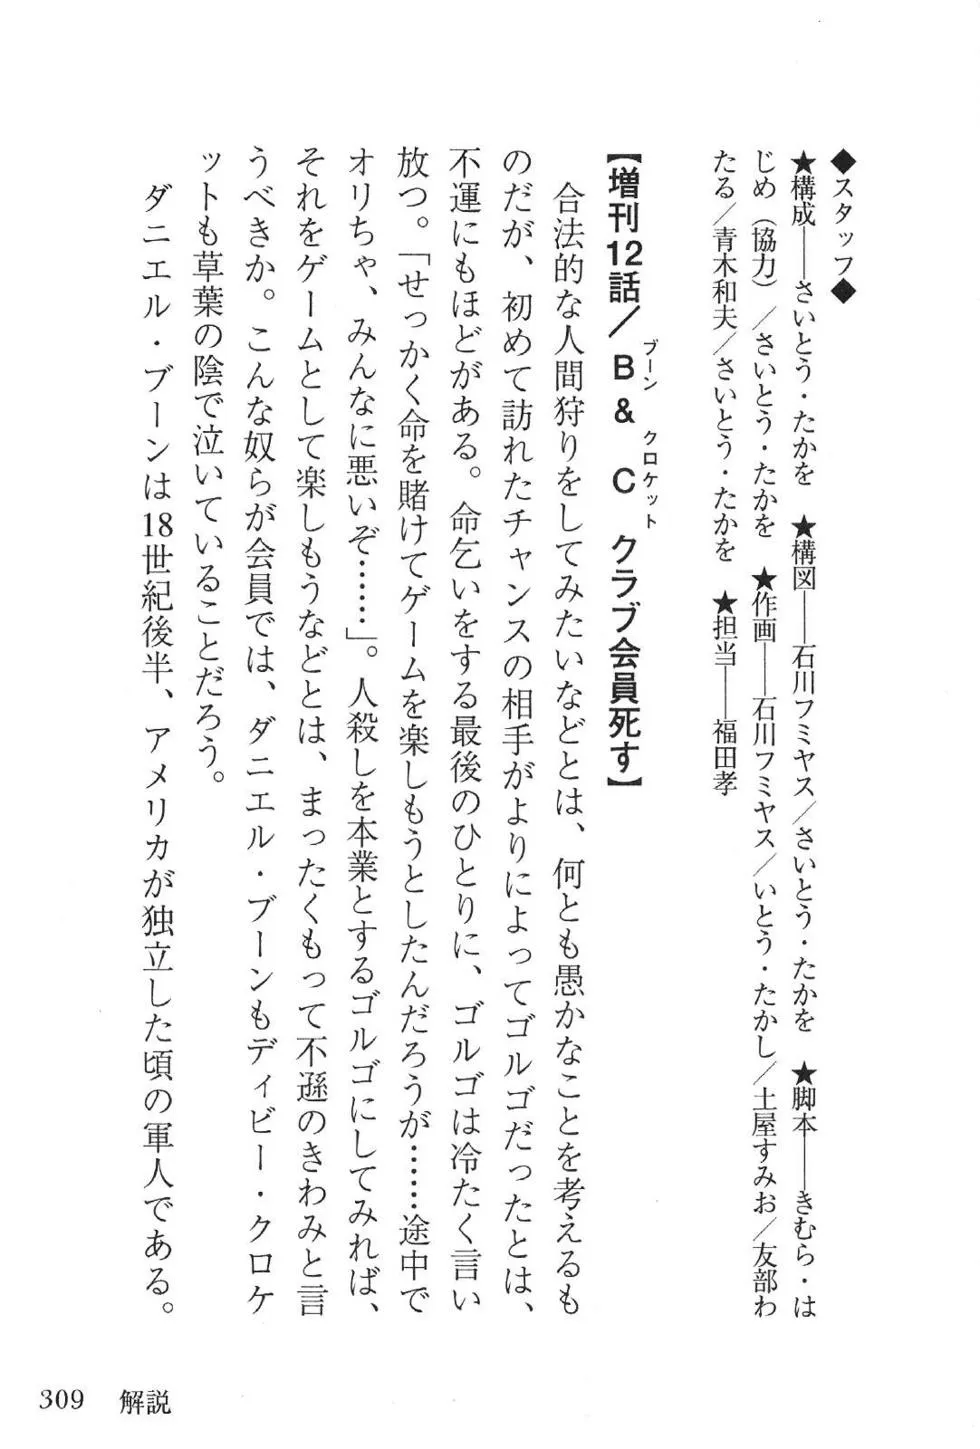 ◆スタッフ◆
★構成——さいとう・たかを　★構図——石川フミヤス／さいとう・たかを　★脚本——きむら・は
じめ（協力）／さいとう・たかを　★作画——石川フミヤス／いとう・たかし／土屋すみお／友部わ
たる／青木和夫／さいとう・たかを　★担当——福田孝
【増刊12話／B＆C クラブ会員死す】
ブーン　クロケット
合法的な人間狩りをしてみたいなどとは、何とも愚かなことを考えるも
のだが、初めて訪れたチャンスの相手がよりによってゴルゴだったとは、
不運にもほどがある。命乞いをする最後のひとりに、ゴルゴは冷たく言い
放つ。「せっかく命を賭けてゲームを楽しもうとしたんだろうが……途中で
オリちゃ、みんなに悪いぞ……」。人殺しを本業とするゴルゴにしてみれば、
それをゲームとして楽しもうなどとは、まったくもって不遜のきわみと言
うべきか。こんな奴らが会員では、ダニエル・ブーンもディビー・クロケ
ットも草葉の陰で泣いていることだろう。
ダニエル・ブーンは18世紀後半、アメリカが独立した頃の軍人である。
309　解説